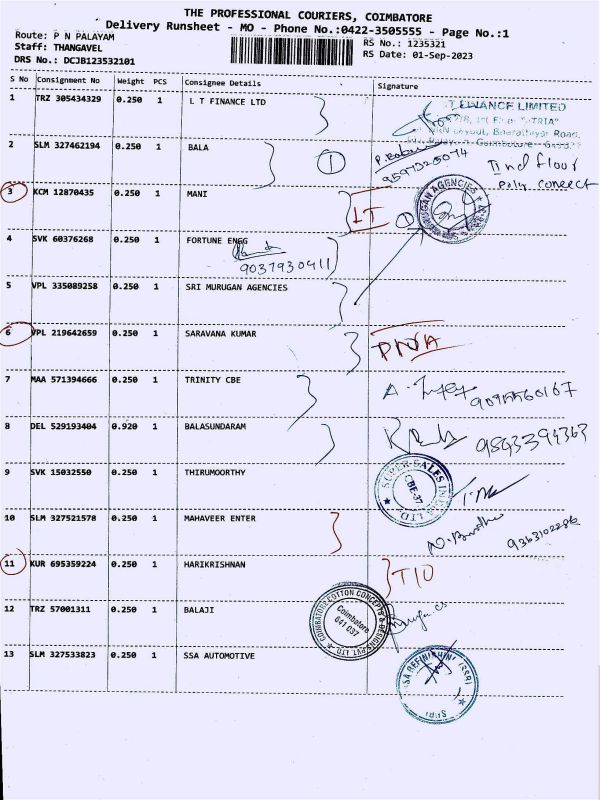 THE PROFESSIONAL COURIERS, COIMBATORE
Delivery Runsheet - MO - Phone No.:0422-3505555 - Page No.:1
Route: P N PALAYAM
RS No.: 1235321
Staff: THANGAVEL
RS Date: 01-Sep-2023
DRS No.: DCJB123532101
S No Consignment No Weight PCS Consignee Details Signature
1 TRZ 305434329 0.250 1 L T FINANCE LTD
FINANCE LIMITED
2 SLM 327462194 0.250 1 BALA
1
P. Babu
9597320074
IInd floor
3 KCM 12870435 0.250 1 MANI
LT
1
MURUGAN AGENCIES
4 SVK 60376268 0.250 1 FORTUNE ENGG
9037930411
5 VPL 335089258 0.250 1 SRI MURUGAN AGENCIES
6 VPL 219642659 0.250 1 SARAVANA KUMAR
PNA
7 MAA 571394666 0.250 1 TRINITY CBE
8 DEL 529193404 0.920 1 BALASUNDARAM
9843394363
9 SVK 15032550 0.250 1 THIRUMOORTHY
SUPER SALES INDIA LTD.
CBE-37
10 SLM 327521578 0.250 1 MAHAVEER ENTER
11 KUR 695359224 0.250 1 HARIKRISHNAN
T10
12 TRZ 57001311 0.250 1 BALAJI
COIMBATORE COTTON CONCEPTS & DESIGNS PVT. LTD.
Coimbatore
641 037
13 SLM 327533823 0.250 1 SSA AUTOMOTIVE